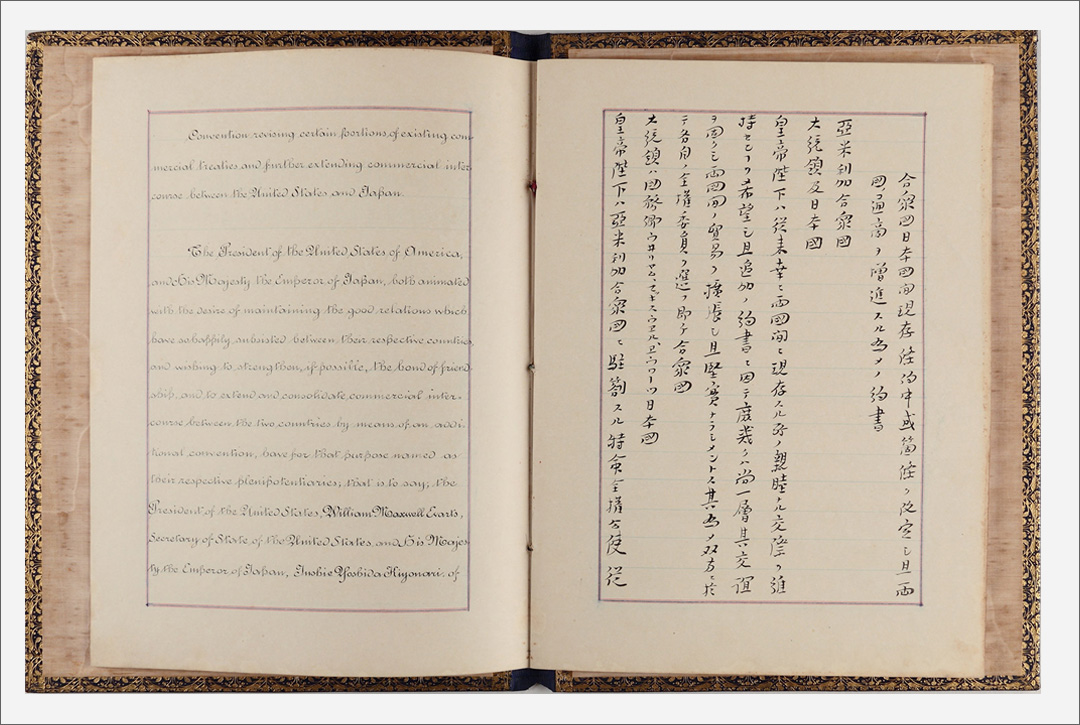 Convention revising certain portions of existing com-
mercial treaties and further extending commercial inter-
course between the United States and Japan.
The President of the United States of America,
and His Majesty the Emperor of Japan, both animated
with the desire of maintaining the good relations which
have so happily subsisted between their respective countries,
and wishing to strengthen, if possible, the bond of friend-
ship, and to extend and consolidate commercial inter-
course between the two countries by means of an addi-
tional convention, have for that purpose named as
their respective plenipotentiaries, that is to say; the
President of the United States, William Maxwell Evarts,
Secretary of State of the United States, and His Majes-
ty the Emperor of Japan, Jushie Yoshida Kiyonari, of
合衆国日本国間現存條約中或箇條ヲ改定シ且両
国ノ通商ヲ増進スル為メノ約書
亞米利加合衆國
大統領及日本國
皇帝陛下ハ従来幸ニ両國間ニ現存スル所ノ親睦ナル交際ヲ維
持センヿヲ希望シ且追加ノ約書ニ因テ庶幾クハ尚一層其交誼
ヲ固クシ両國間ノ貿易ヲ擴張シ且堅實ナラシメントス其為メ双方ニ於
テ各自ノ全權委員ヲ選フ即チ合衆國
大統領ハ国務卿ウヰリアムマキスウエルエワーツ日本國
皇帝陛下ハ亞米利加合衆國ニ駐箚スル特命全權公使従